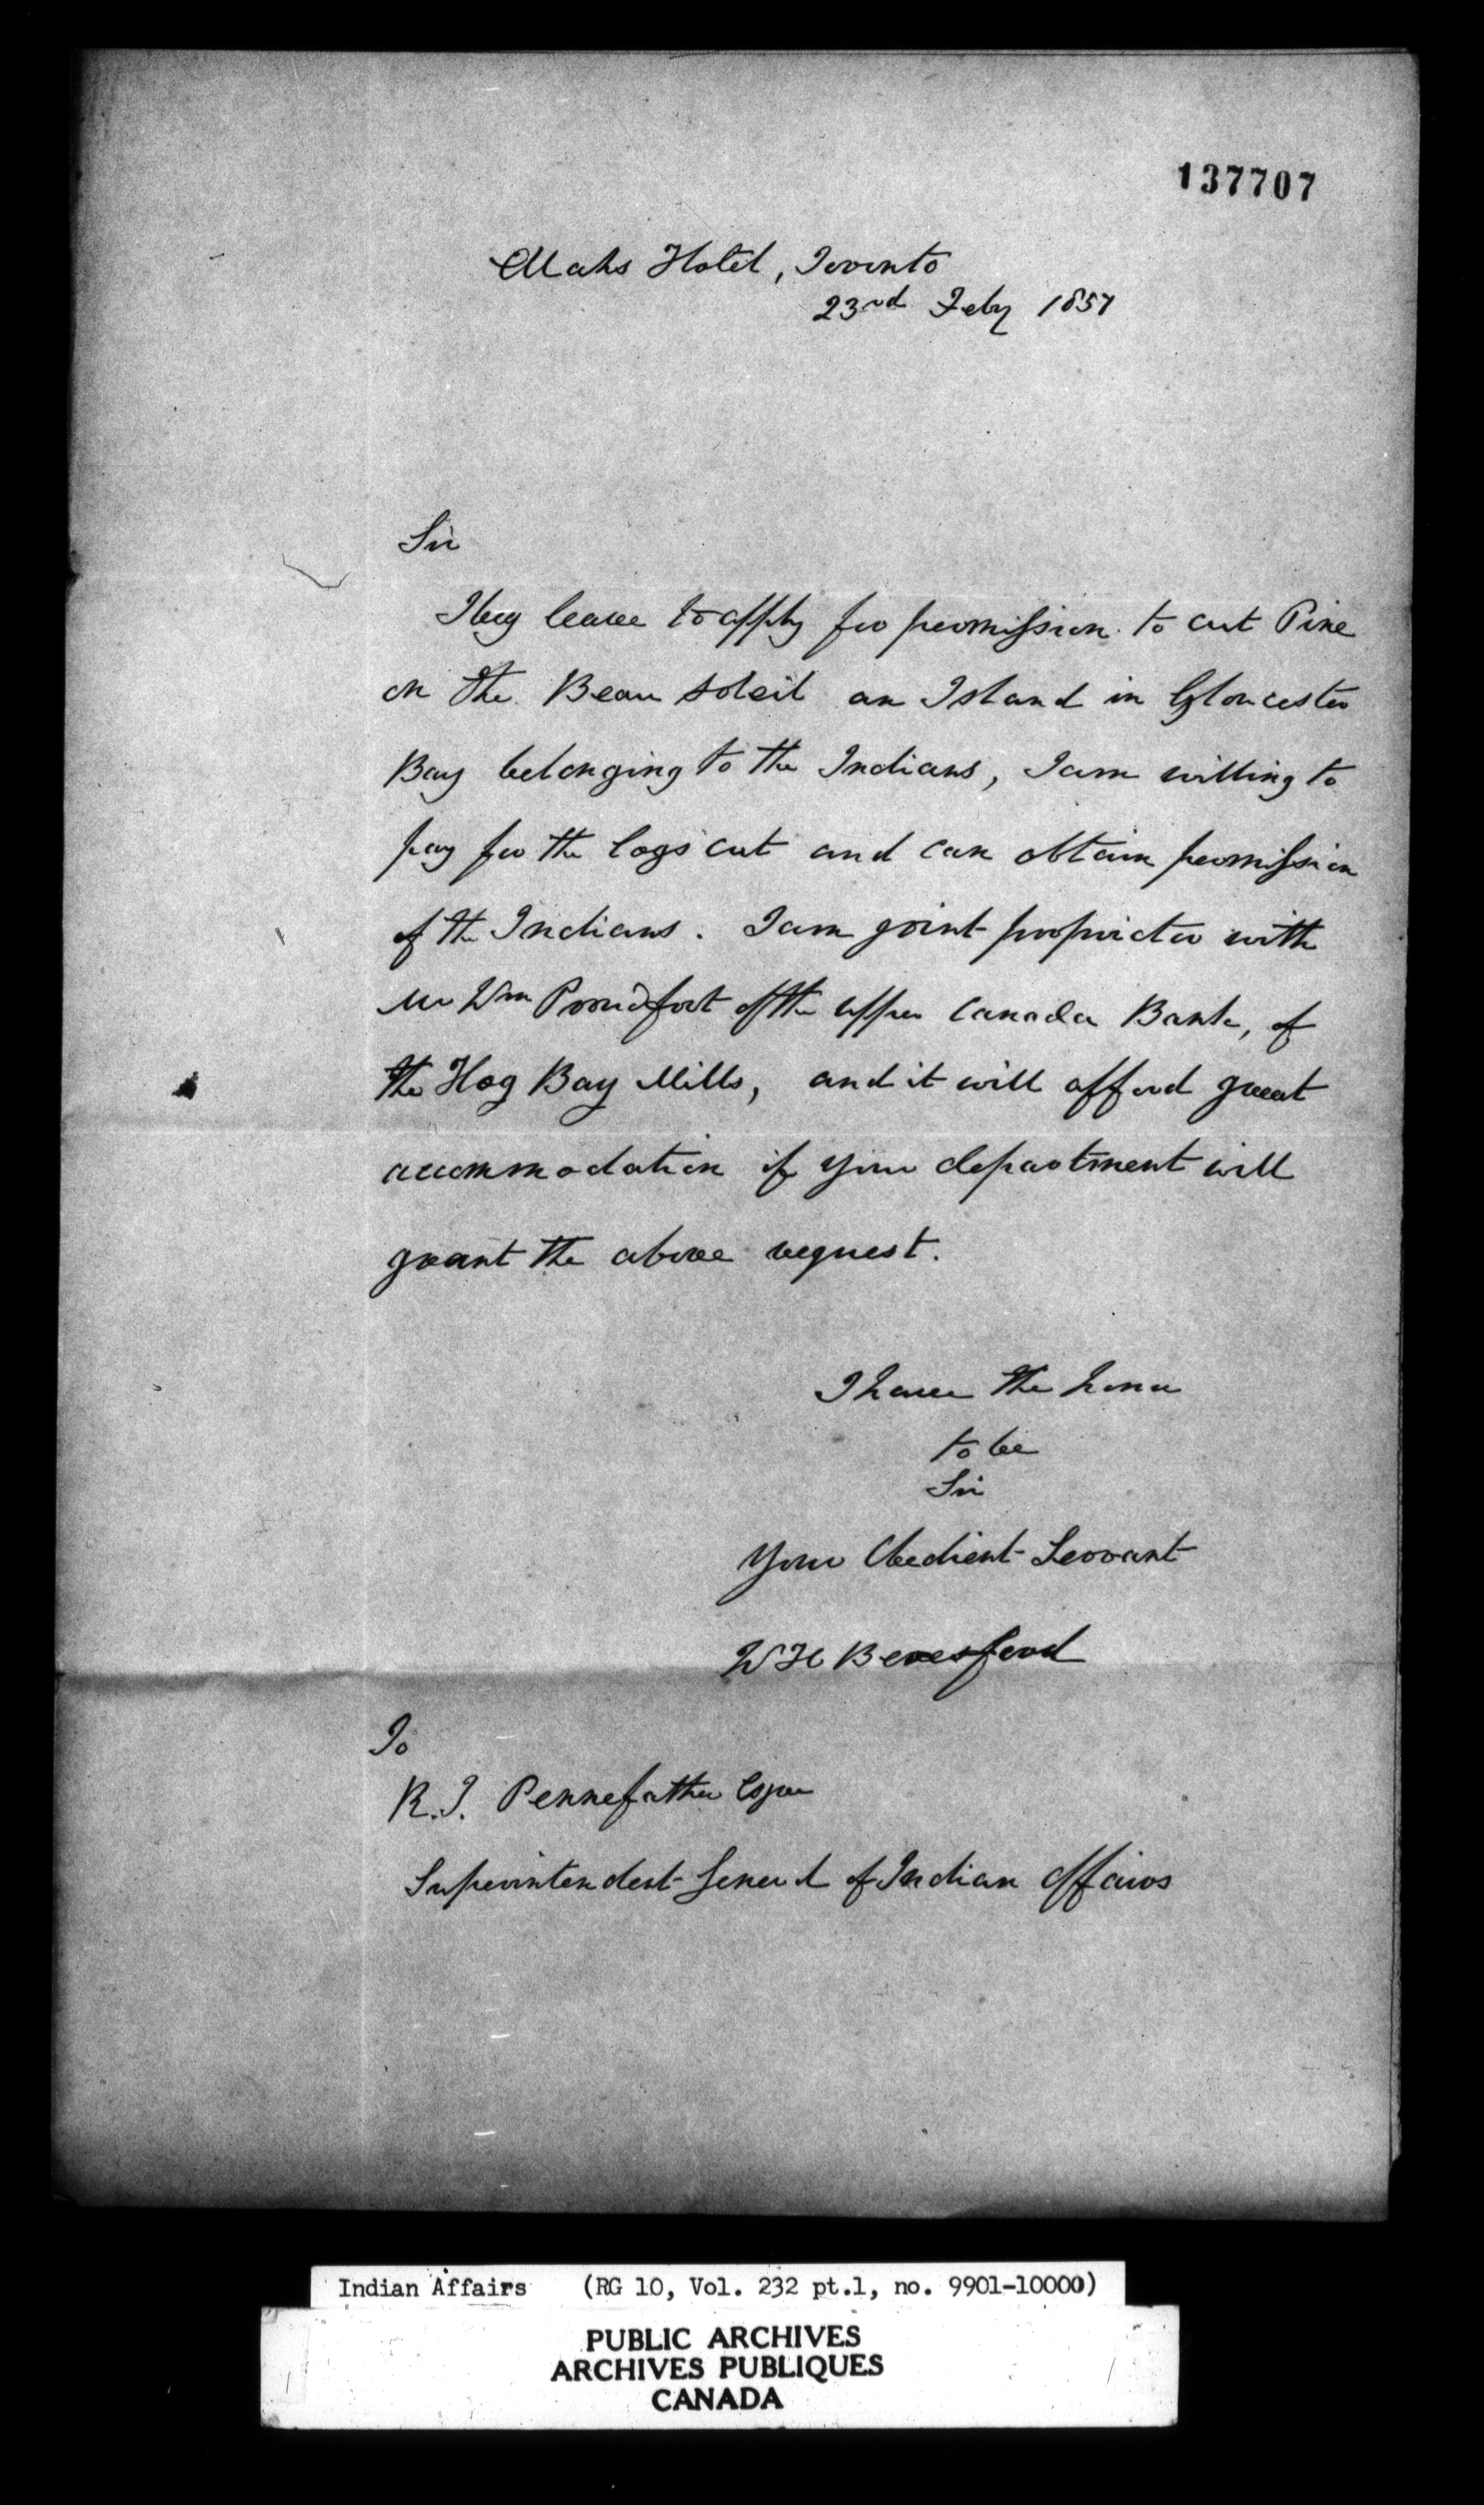 137707
Mahs Hotel, Toronto
23rd Feby 1857
Sir
I beg leave to apply for permission to cut Pine
on the Beau soleil an Island in Gloucester
Bay belonging to the Indians, I am willing to
pay for the logs cut and can obtain permission
of the Indians. I am joint proprietor with
Mr Wm Proudfoot of the upper Canada Bank, of
the Hog Bay Mills, and it will afford great
accommodation if your department will
grant the above request.
I have the honor
to be
Sir
Your Obedient Servant
W H Beresford
To
R. T. Pennefather Esqre
Superintendent General of Indian Affairs
Indian Affairs (RG 10, Vol. 232 pt.1, no. 9901-10000)
PUBLIC ARCHIVES
ARCHIVES PUBLIQUES
CANADA